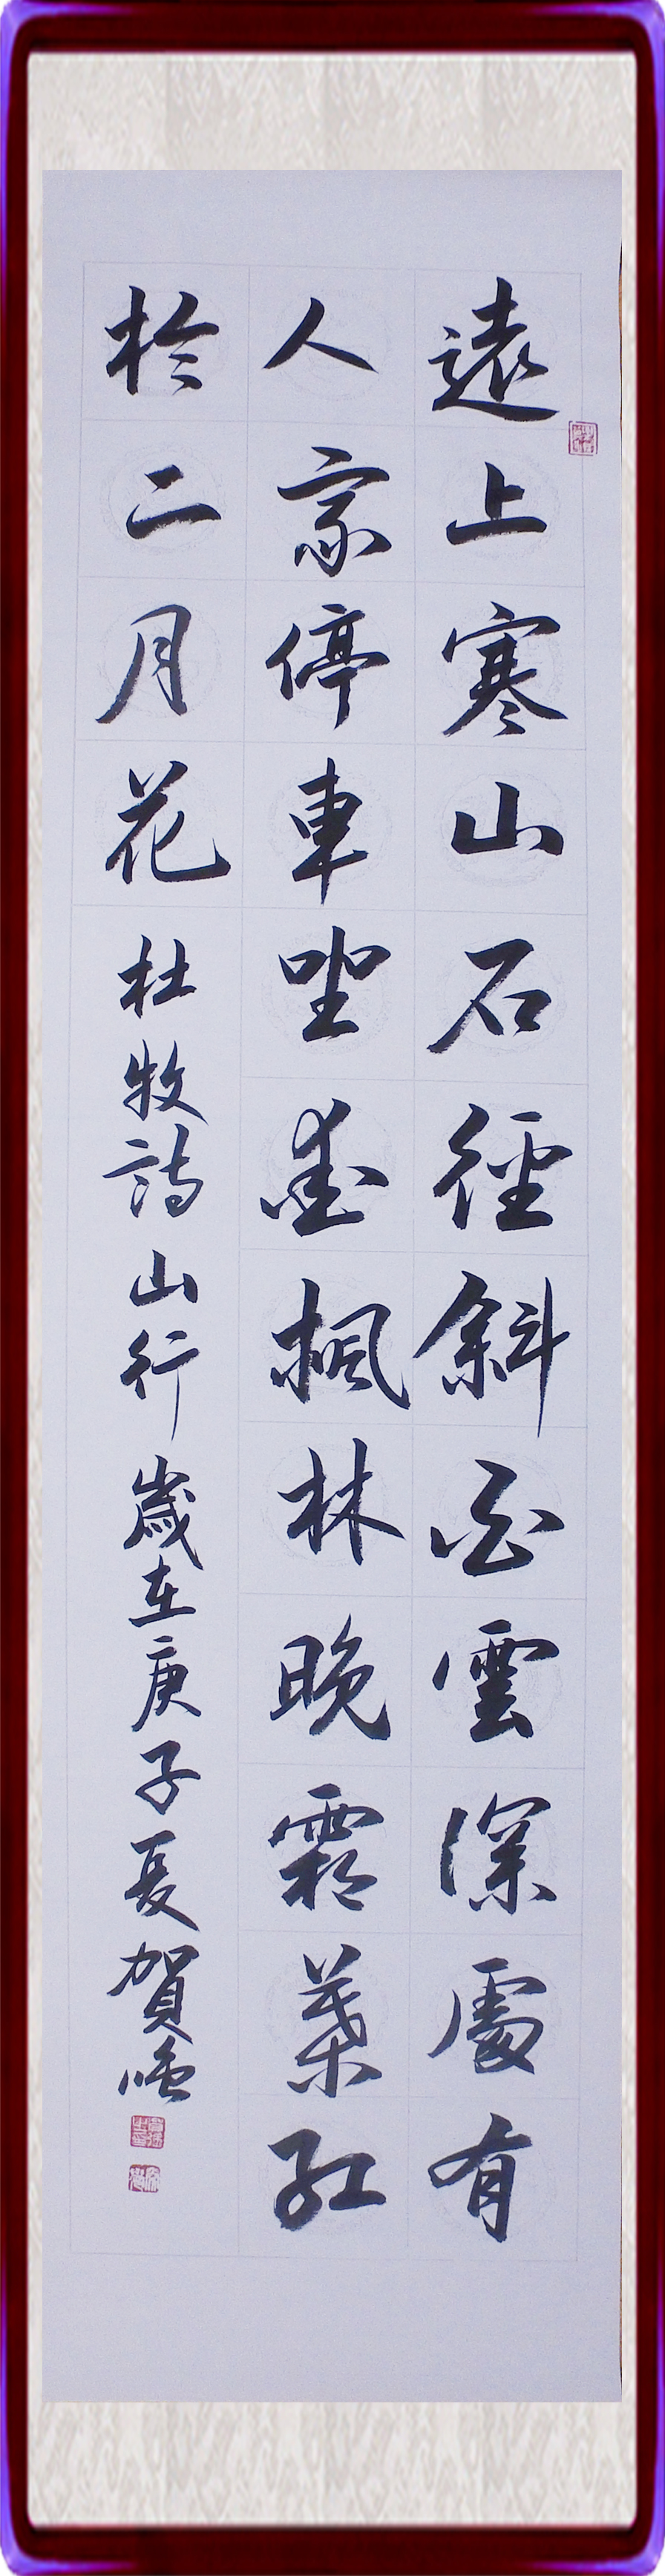 遠上寒山石徑斜白雲深處有
人家停車坐愛楓林晚霜葉紅
於二月花杜牧詩山行歲在庚子夏賀